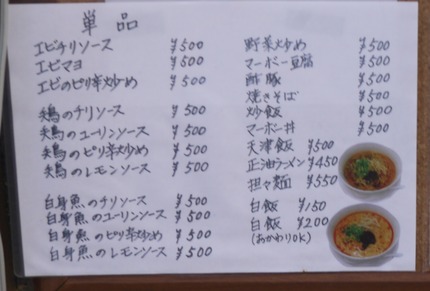 単品
エビチリソース ¥500
エビマヨ ¥500
エビのピリ辛炒め ¥500
鶏のチリソース ¥500
鶏のユーリンソース ¥500
鶏のピリ辛炒め ¥500
鶏のレモンソース ¥500
白身魚のチリソース ¥500
白身魚のユーリンソース ¥500
白身魚のピリ辛炒め ¥500
白身魚のレモンソース ¥500
野菜炒め ¥500
マーボー豆腐 ¥500
酢豚 ¥500
焼きそば ¥500
炒飯 ¥500
マーボー丼 ¥500
天津飯 ¥500
正油ラーメン ¥450
担々麺 ¥550
白飯 ¥150
白飯 ¥200
(おかわりOK)